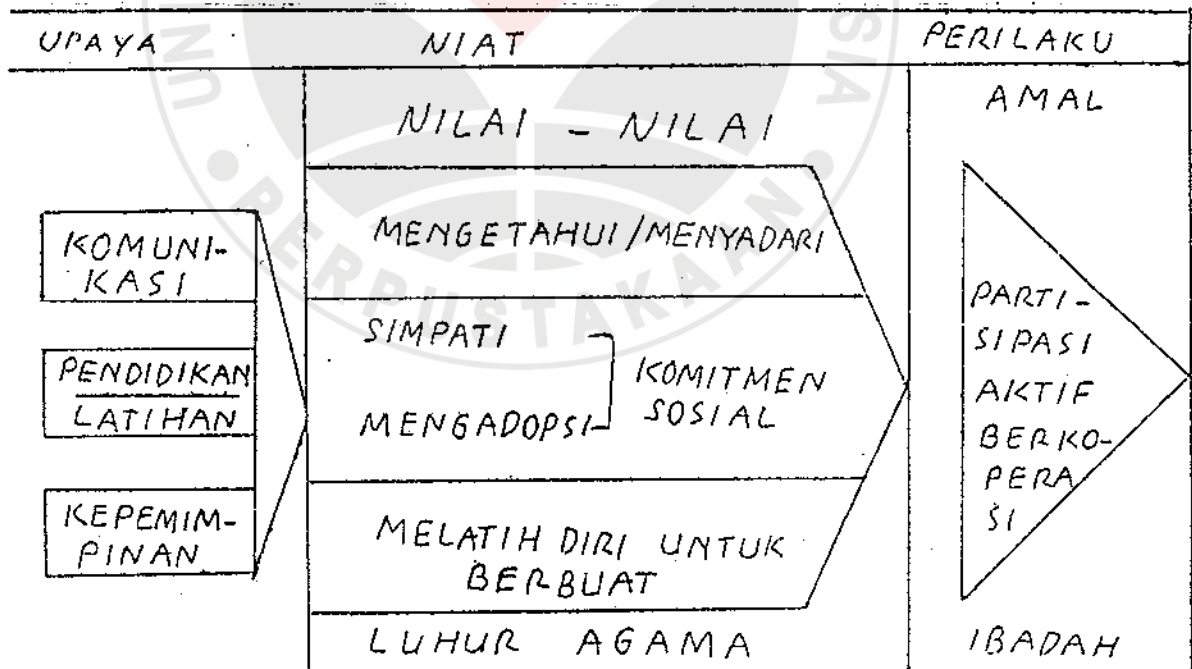 UPAYA
NIAT
PERILAKU
NILAI - NILAI
AMAL
KOMUNI-
KASI
PENDIDIKAN
LATIHAN
KEPEMIM-
PINAN
MENGETAHUI/MENYADARI
SIMPATI
MENGADOPSI
KOMITMEN
SOSIAL
MELATIH DIRI UNTUK
BERBUAT
LUHUR AGAMA
PARTI-
SIPASI
AKTIF
BERKO-
PERA
SI
IBADAH
PERPUSTAKAAN